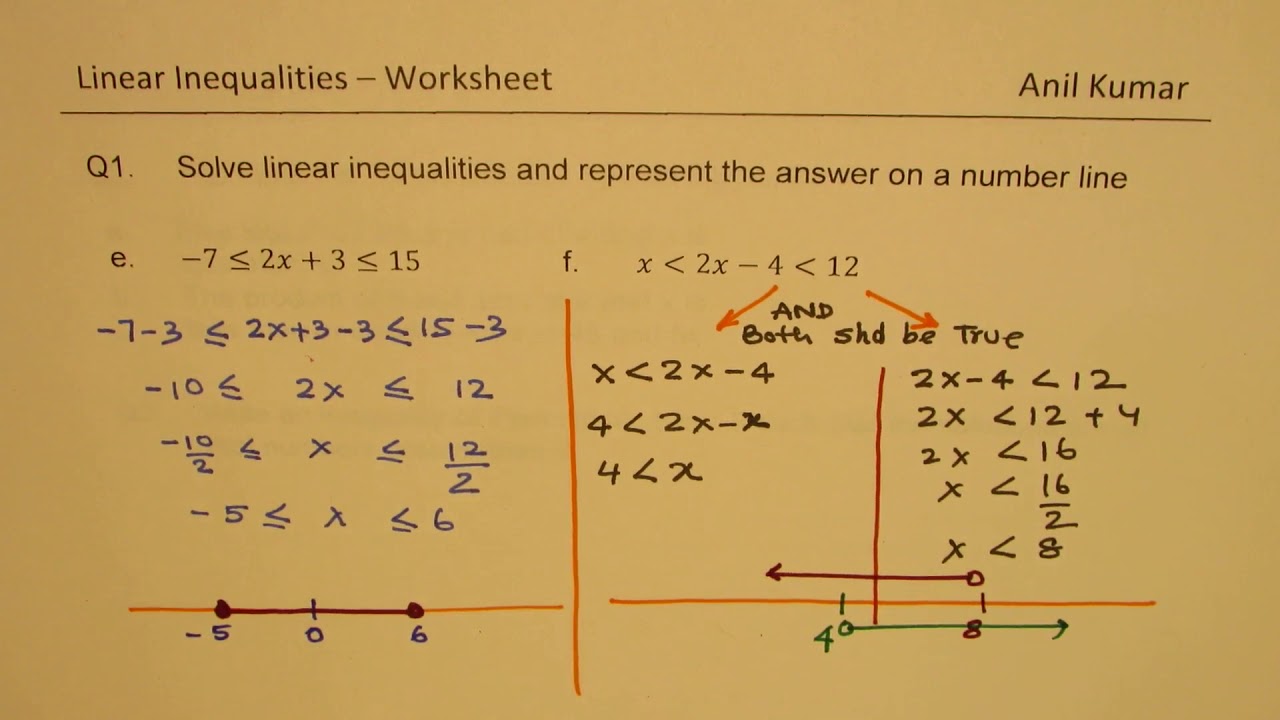 Linear Inequalities – Worksheet Anil Kumar
Q1. Solve linear inequalities and represent the answer on a number line
e. −7 ≤ 2x + 3 ≤ 15
-7-3 ≤ 2x+3-3 ≤ 15-3
-10 ≤ 2x ≤ 12
-10/2 ≤ x ≤ 12/2
-5 ≤ x ≤ 6
-5 0 6
f. x < 2x − 4 < 12
AND
Both shd be True
x < 2x-4
4 < 2x-x
4 < x
2x-4 < 12
2x < 12 + 4
2x < 16
x < 16/2
x < 8
4 8